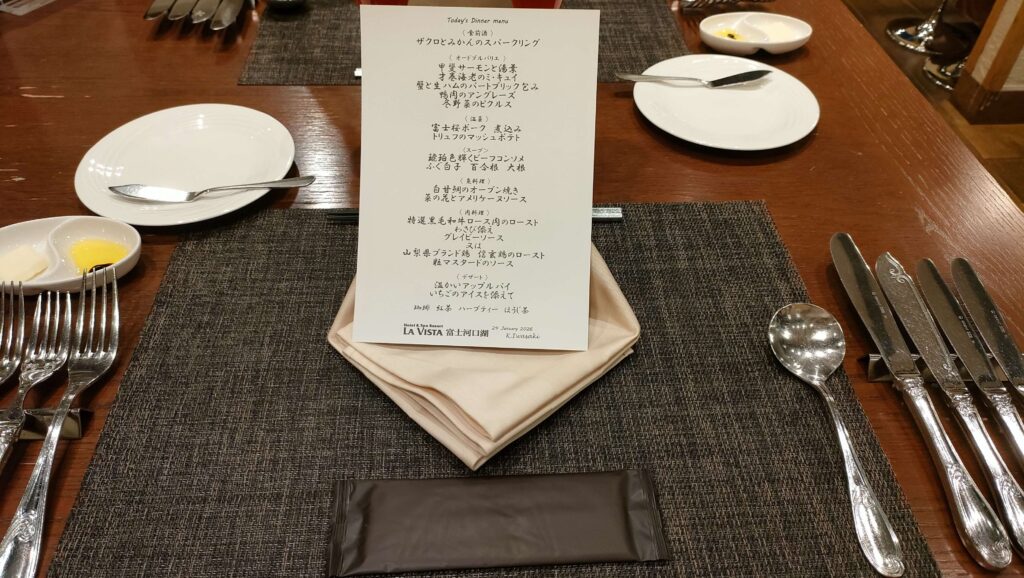 Today's Dinner menu
（食前酒）
ザクロとみかんのスパークリング
（オードブルバリエ）
甲斐サーモンと湯葉
才巻海老のミ・キュイ
蟹と生ハムのパートブリック包み
鴨肉のアングレーズ
冬野菜のピクルス
（温菜）
富士桜ポーク 煮込み
トリュフのマッシュポテト
（スープ）
琥珀色輝くビーフコンソメ
ふぐ白子 百合根 大根
（魚料理）
白甘鯛のオーブン焼き
菜の花とアメリケーヌソース
（肉料理）
特選黒毛和牛ロース肉のロースト
わさび添え
グレイビーソース
又は
山梨県ブランド鶏 信玄鶏のロースト
粒マスタードのソース
（デザート）
温かいアップルパイ
いちごのアイスを添えて
珈琲 紅茶 ハーブティー ほうじ茶
Hotel & Spa Resort
LA VISTA 富士河口湖
29 January 2026
K.Iwasaki